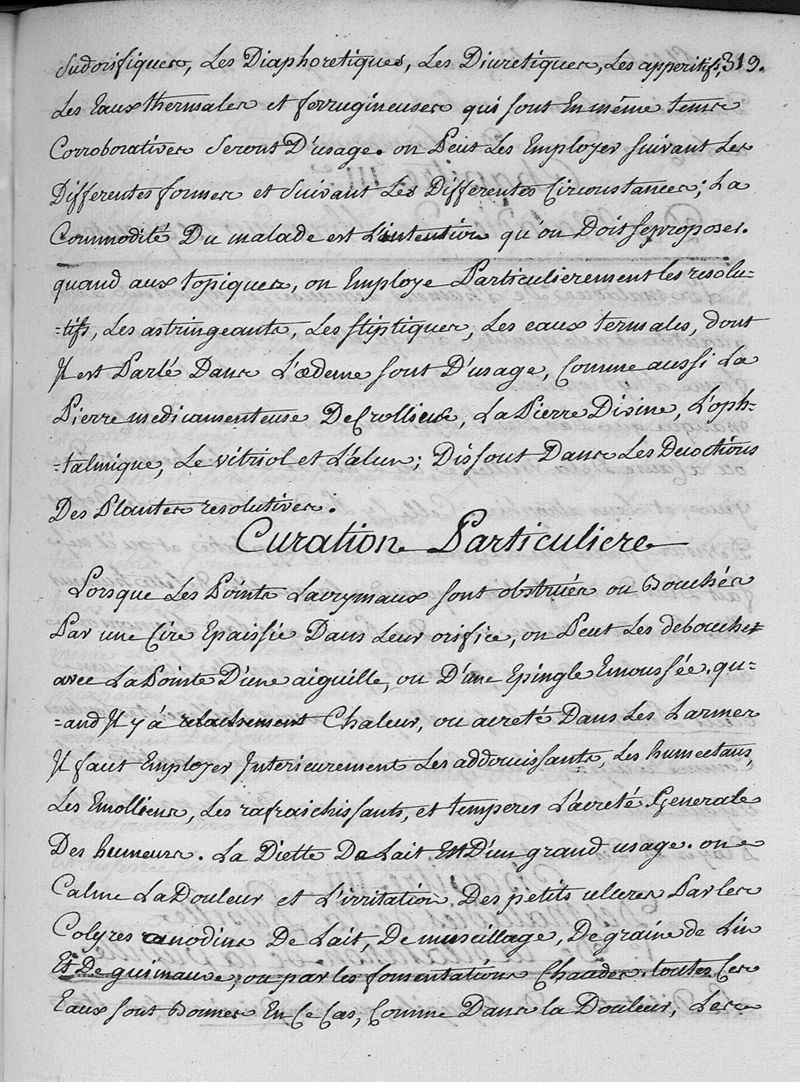 Sudorifiques, Les Diaphoretiques, Les Diuretiques, Les apperitifs, 319.
Les Eaux thermales et ferrugineuses qui sont En même tems
Corroboratives Seront D'usage. on Peut Les Employer suivant Les
Differentes formes et Suivant Les Differentes Circonstances; La
Commodité Du malade est L'intention qu'on Doit se proposer.
quand aux topiques, on Employe Particulierement les resolu-
-tifs, Les astringeants, Les stiptiques, Les eaux termales, dont
Il est Parlé Dans L'œdeme sont D'usage, Comme aussi La
Pierre medicamenteuse De Crollieus, La Pierre Divine, L'oph-
-talmique, Le vitriol et L'alun; Dissout Dans Les Decoctions
Des Plantes resolutives.
Curation Particuliere
Lorsque Les Points Lacrymaux sont obstrués ou Bouchés
Par une Cire Epaissie Dans Leur orifice, on Peut Les deboucher
avec La Pointe D'une aiguille, ou D'une Epingle Emoussée. qu-
-and Il y a relachement Chaleur, ou acreté Dans Les Larmes
Il faut Employer Interieurement Les addoucissants, Les humectans,
Les Emolliens, Les rafraichissants, et temperes L'acreté Generale
Des humeurs. La Diette De Lait Est D'un grand usage. on
Calme La Douleur et L'irritation Des petits ulceres Par les
Colyres anodins De Lait, De muscillage, De graine de Lin
Et De guimauve, ou par les fomentations Chaudes. toutes Ces
Eaux sont Bonnes En Ce Cas, Comme Dans la Douleur, Les